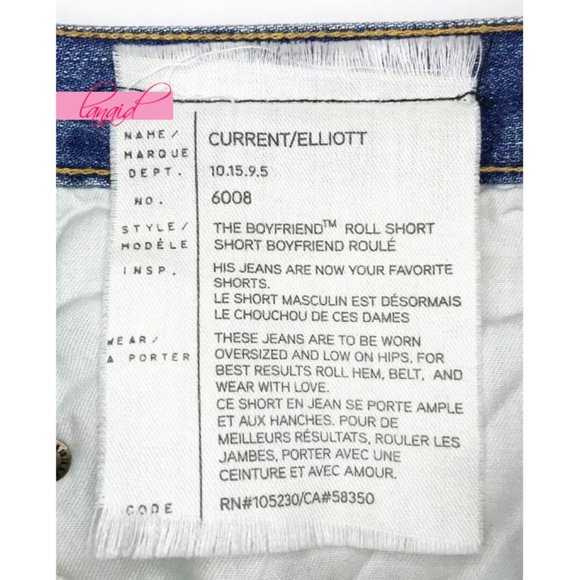 lanaid
NAME/ CURRENT/ELLIOTT
MARQUE
DEPT. 10.15.9.5
NO. 6008
STYLE/ THE BOYFRIEND™ ROLL SHORT
MODÈLE SHORT BOYFRIEND ROULÉ
INSP. HIS JEANS ARE NOW YOUR FAVORITE
SHORTS.
LE SHORT MASCULIN EST DÉSORMAIS
LE CHOUCHOU DE CES DAMES
WEAR/ THESE JEANS ARE TO BE WORN
A PORTER OVERSIZED AND LOW ON HIPS. FOR
BEST RESULTS ROLL HEM, BELT, AND
WEAR WITH LOVE.
CE SHORT EN JEAN SE PORTE AMPLE
ET AUX HANCHES. POUR DE
MEILLEURS RÉSULTATS, ROULER LES
JAMBES, PORTER AVEC UNE
CEINTURE ET AVEC AMOUR.
CODE RN#105230/CA#58350